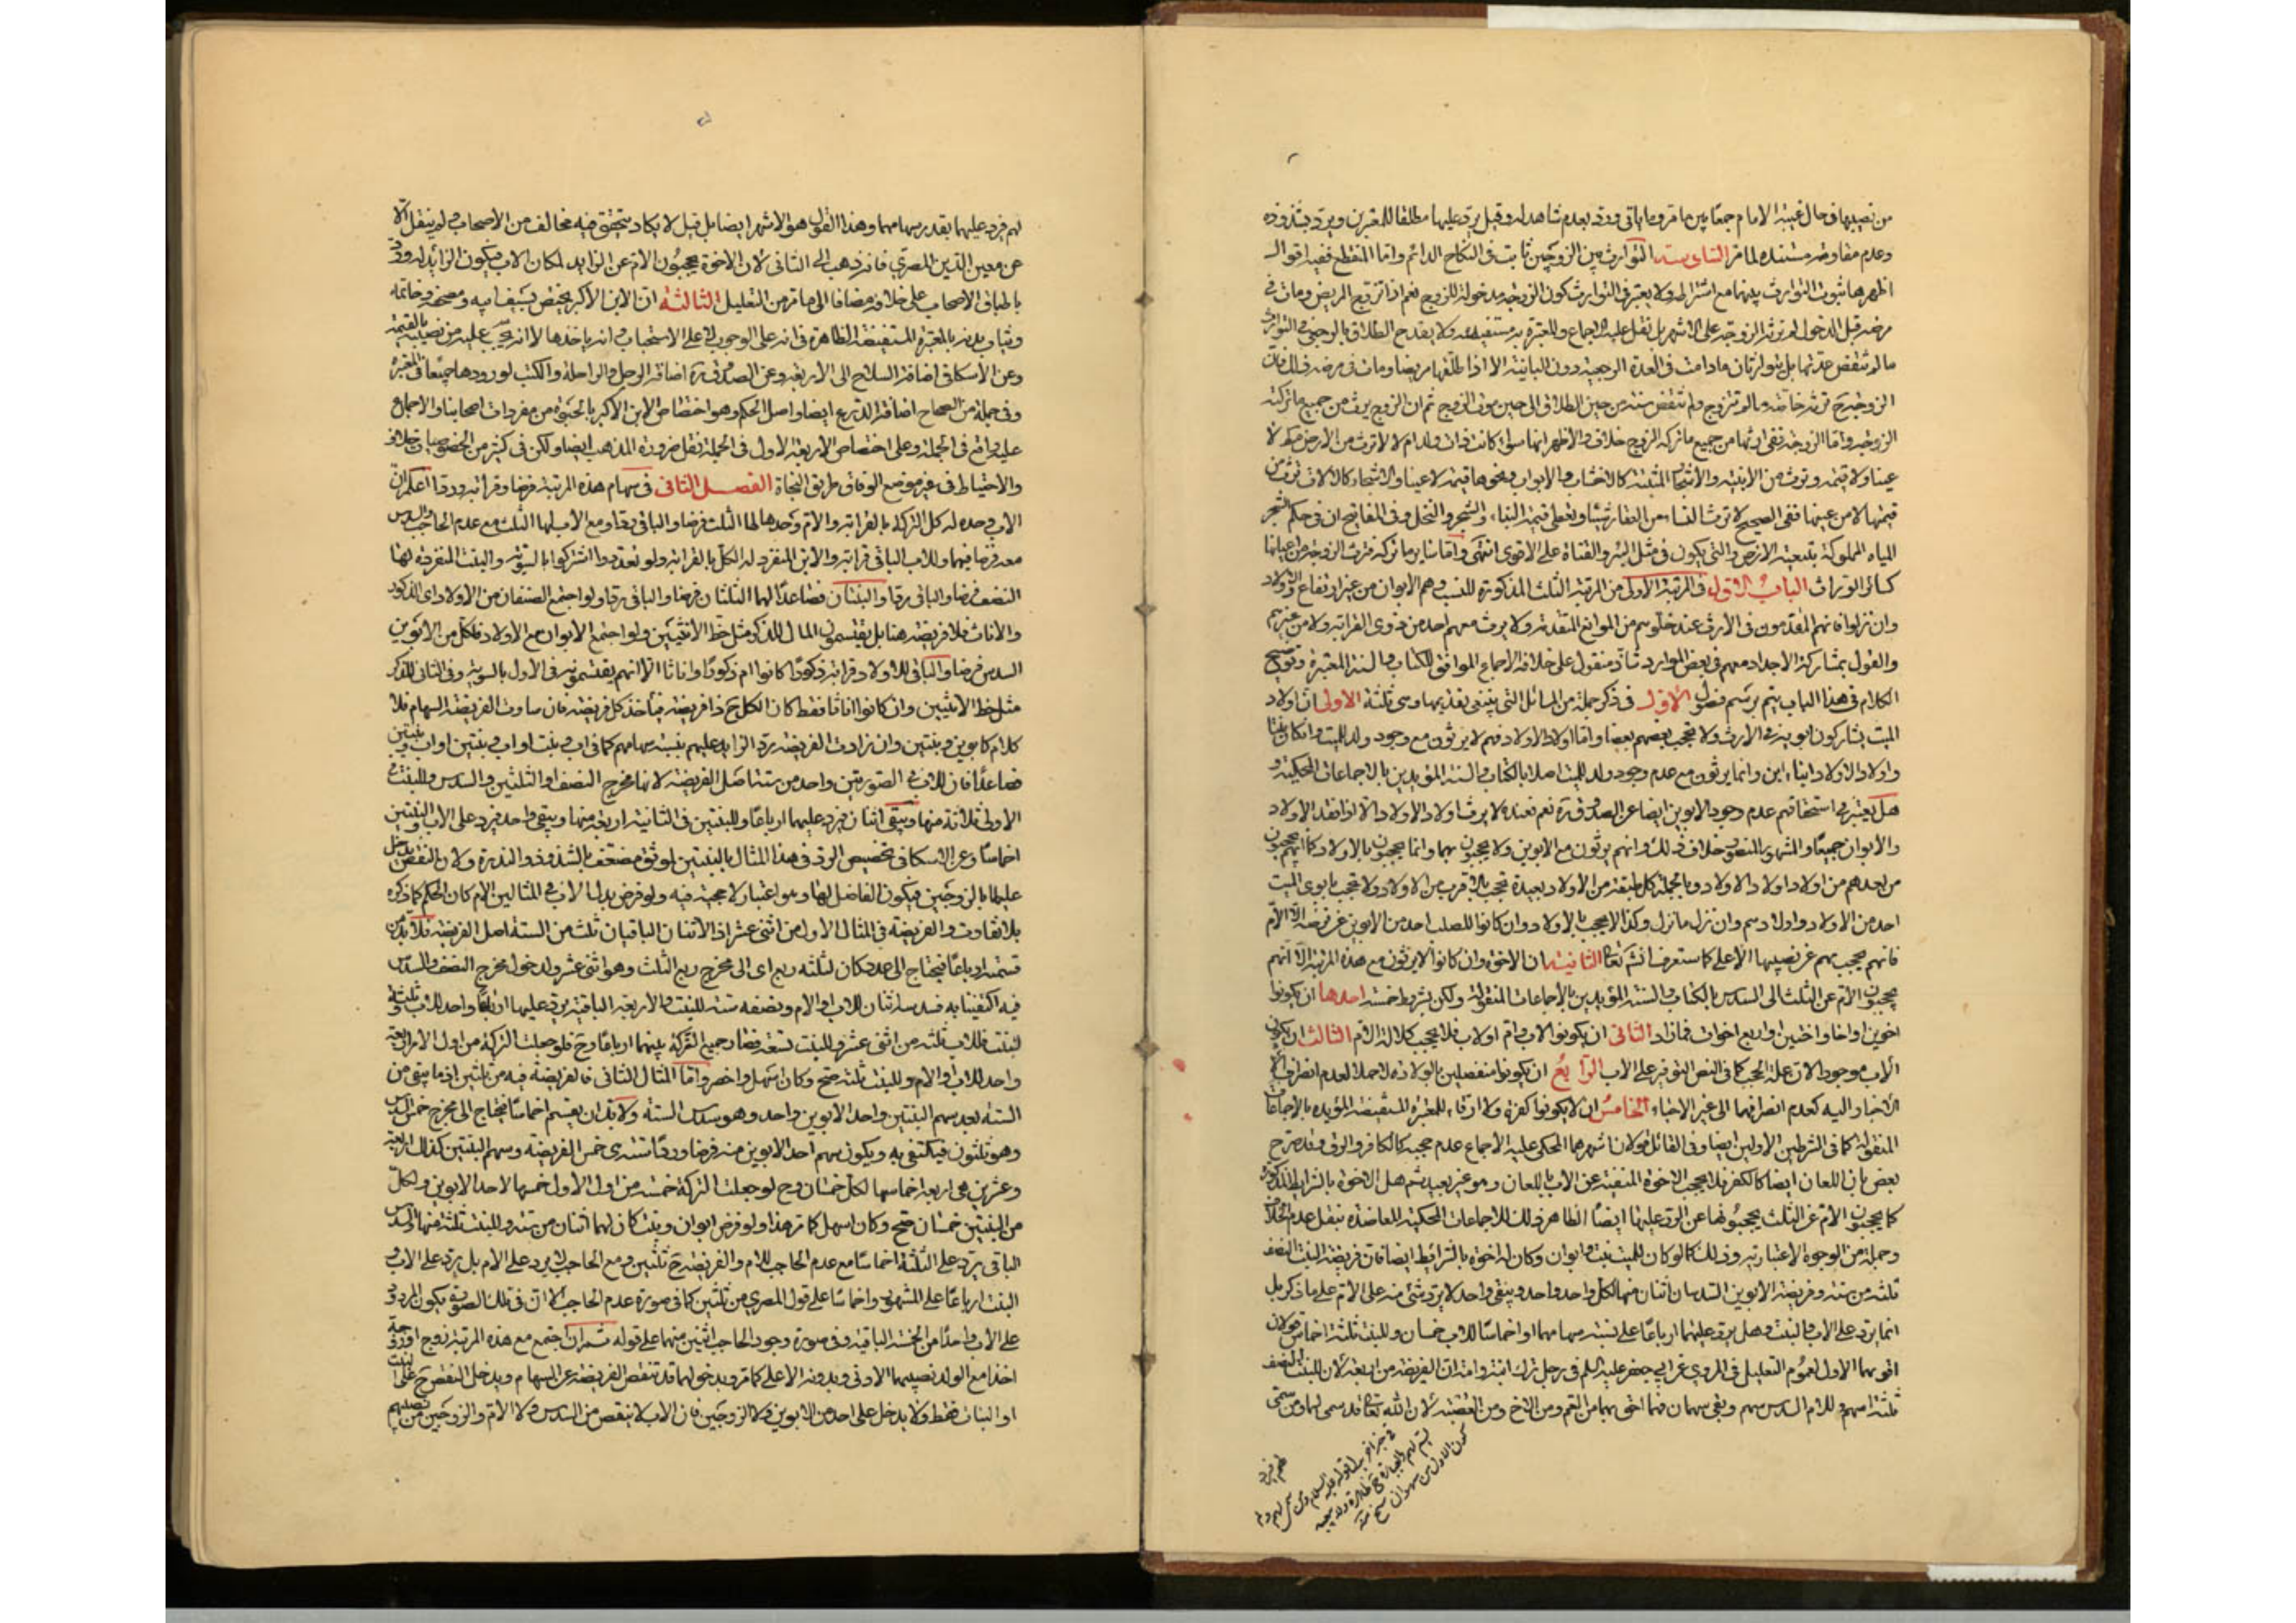 من نصيبها في حال غيبة الامام جمعا بين ما مر وما ياتي ورد بعدم شاهد له وقيل يرد عليها مطلقا للخبرين ويرد بشذوذه
وعدم مقاومته مستنده لما مر السادسة التوارث بين الزوجين ثابت في النكاح الدائم واما المنقطع ففيه اقوال
اظهرها ثبوت التوارث بينهما مع اشتراطه ولا يعتبر في التوارث كون الزوجة مدخولة للزوج نعم اذا تزوج المريض ومات في
مرضه قبل الدخول لم ترثه الزوجة على الاشهر بل نقل عليه الاجماع والمعتبرة به مستفيضة ولا يقدح الطلاق بالرجعي في التوارث
ما لم تنقض عدتها بل يتوارثان مادامت في العدة الرجعية دون البائنة الا اذا طلقها مريضا ومات في مرضه ذلك فان
الزوجة ح ترثه خاصة ما لم تتزوج ولم تنقض سنة من حين الطلاق الى حين موت الزوج ثم ان الزوج يرث من جميع ما تركته
الزوجة واما الزوجة ففي ارثها من جميع ما تركه الزوج خلاف والاظهر انها سواء كانت ذات ولد ام لا لا ترث من الارض مطلقا لا
عينا ولا قيمة وترث من الابنية والاشجار المثبتة كالاخشاب والابواب ونحوها قيمة لا عينا والاشجار كالالات ترث من
قيمتها لا من عينها ففي الصحيح لا ترث النساء من العقار شيئا ويعطى قيمة البناء والشجر والنخل وفي المفاتيح ان في حكم الشجر
المياه المملوكة بتبعية الارض والتي يكون في مثل البئر والقناة على الاقوى انتهى واما سائر ما تركه فترث الزوجة من اعيانها
كسائر الوراث الباب الاول في المرتبة الاولى من المرتبة الثلث المذكورة للنسب وهم الابوان من غير ارتفاع والاولاد
وان نزلوا فانهم المقدمون في الارث عند خلوهم من الموانع المتقدمة ولا يرث معهم احد من ذوى القرابة ولا من غيرهم
والقول بمشاركة الاجداد معهم في بعض الموارد شاذ منقول على خلافه الاجماع الموافق للكتاب والسنة المعتبرة وتوضيح
الكلام في هذا الباب يتم برسم فصول الاول في ذكر جملة من المسائل التي ينبغى تقديمها وهى ثلثة الاولى ان اولاد
الميت يشاركون ابويه في الارث ولا يحجب بعضهم بعضا واما اولاد الاولاد فهم لا يرثون مع وجود ولد للميت وان كان بنتا
واولاد الاولاد ابناء ابن وانما يرثون مع عدم وجود ولد للميت اصلا بالكتاب والسنة المؤيدين بالاجماعات المحكية و
هل يعتبر في استحقاقهم عدم وجود الابوين ايضا عن الصدوق ره نعم فعنده لا يرث اولاد الاولاد الا اذا فقد الاولاد
والابوان جميعا والمشهور المنصور خلاف ذلك وانهم يرثون مع الابوين ولا يحجبون بهما وانما يحجبون بالاولاد كما انهم يحجبون
من بعدهم من اولاد اولاد الاولاد وبالجملة كل طبقة من الاولاد بعيدة تحجب بالاقرب من الاولاد ولا تحجب بابوى الميت
احد من الاولاد واولادهم وان نزل ما نزل وكذا لا يحجب بالاولاد وان كانوا للصلب احد من الابوين عن فرضه الا الام
فانهم يحجبونهم عن نصيبها الاعلى كما ستعرف انشاء تعالى الثانية ان الاخوة وان كانوا لا يرثون مع هذه المرتبة الا انهم
يحجبون الام عن الثلث الى السدس بالكتاب والسنة المؤيدين بالاجماعات المنقولة ولكن بشروط خمسة احدها ان يكونوا
اخوين او اخا واختين او اربع اخوات فمازاد الثاني ان يكونوا لاب وام او لاب فلا يحجب كلالة الام الثالث ان يكون
الاب موجودا لان علة الحجب كما في النص التوفير على الاب الرابع ان يكونوا منفصلين بالولادة لا حملا لعدم انصراف
الاخبار اليه كعدم انصرافها الى غير الاحياء الخامس ان لا يكونوا كفرة ولا ارقاء للمعتبرة المستفيضة المؤيدة بالاجماعات
المنقولة كما في الشرطين الاولين ايضا وفي القاتل قولان اشهرهما المحكى عليه الاجماع عدم حجبه كالكافر والرق وقد صرح
بعض بان اللعان ايضا كالكفر فلا يحجب الاخوة المنفية عن الاب باللعان وهو غير بعيد ثم هل الاخوة بالشرائط المذكورة
كما يحجبون الام عن الثلث يحجبونها عن الرد عليها ايضا الظاهر ذلك للاجماعات المحكية المعاضدة بنقل عدم الخلاف
وجملة من الوجوه الاعتبارية وذلك كما لو كان للميت بنت وابوان وكان له اخوة بالشرائط ايضا فان فريضة البنت النصف
ثلثة من ستة وفريضة الابوين السدسان اثنان منها لكل واحد واحد ويبقى واحد لا يرد شئ منه على الام على ما ذكر بل
انما يرد على الاب والبنت وهل يرد عليهما ارباعا على نسبة سهامهما او اخماسا للاب خمسان وللبنت ثلثة اخماس قولان
اقويهما الاول لعموم التعليل في المروي عن ابي جعفر عليه السلم في رجل ترك ابنته وامه ان الفريضة من اربعة لان للبنت النصف
ثلثة اسهم وللام السدس سهم وبقى سهمان فهما احق بهما من العم ومن الاخ ومن العصبة لان الله تعالى قد سمى لهما ومن سمى
لهم فيرد عليهما بقدر سهامهما وهذا القول هو الاشهر ايضا بل قيل لا يكاد يتحقق فيه مخالف من الاصحاب ولم ينقل الا
عن معين الدين المصري فانه ذهب الى الثاني لان الاخوة يحجبون الام عن الزايد لمكان الاب فيكون الزائد له ورد
باطباق الاصحاب على خلافه مضافا الى ما مر من التعليل الثالثة ان الابن الاكبر يختص بسيف ابيه ومصحفه وخاتمه
وثياب بدنه بالمعتبرة المستفيضة الظاهرة في انه على الوجوب لا على الاستحباب انه ياخذها لا انه يحسب عليه من نصيبه بالقيمة
وعن الاسكافي اضافة السلاح الى الاربعة وعن الصدوق ره اضافة الرحل والراحلة والكتب لورودها جميعا في المعتبرة
وفي جملة من الصحاح اضافة الدرع ايضا واصل الحكم وهو اختصاص الابن الاكبر بالحبوة من مفردات اصحابنا والاجماع
عليه واقع في الجملة وعلى اختصاص الاربعة الاول في الجملة نقل ضرورة المذهب ايضا ولكن في كثير من الخصوصيات خلاف
والاحتياط في غير موضع الوفاق طريق النجاة الفصل الثاني في سهام هذه المرتبة فرضا وقرابة وردا اعلم ان
الاب وحده له كل التركة بالقرابة والام وحدها لها الثلث فرضا والباقي ردا ومع الاب لها الثلث مع عدم الحاجب والسدس
معه فرضا فيهما وللاب الباقي قرابة والابن المنفرد له الكل بالقرابة ولو تعددوا اشتركوا بالسوية والبنت المنفردة لها
النصف فرضا والباقي ردا والبنتان فصاعدا لهما الثلثان فرضا والباقي ردا ولو اجتمع الصنفان من الاولاد اى الذكور
والاناث فلا فريضة هنا بل يقتسمون المال للذكر مثل حظ الانثيين ولو اجتمع الابوان مع الاولاد فلكل من الابوين
السدس فرضا والباقي للاولاد قرابة ذكورا كانوا ام ذكورا واناثا الا انهم يقتسمونه في الاول بالسوية وفي الثاني للذكر
مثل حظ الانثيين وان كانوا اناثا فقط كان الكل ح ذا فريضة فيأخذ كل فريضته فان ساوت الفريضة السهام فلا
كلام كابوين وبنتين وان زادت الفريضة يرد الزايد عليهم بنسبة سهامهم كما في اب وبنت او اب وبنتين او اب وبنتين
فصاعدا فان للاب في الصورتين واحد من ستة اصل الفريضة لانها مخرج النصف او الثلثين والسدس وللبنت في
الاولى ثلاثة منها ويبقى اثنان فيرد عليهما ارباعا وللبنتين في الثانية اربعة منها ويبقى واحد فيرد على الاب والبنتين
اخماسا وعن الاسكافي تخصيص الرد في هذا المثال بالبنتين لموثق مضعف بالشذوذ والندرة ولان النقص يدخل
عليهما بالزوجين فيكون الفاضل لهما وهو اعتبار لا حجية فيه ولو فرض بدل الاب في المثالين الام كان الحكم كما ذكره
بلا تفاوت والفريضة في المثال الاول من اثنى عشر اذ الاثنان الباقيان ثلث من الستة اصل الفريضة فلا بد من
قسمته ارباعا فيحتاج الى عدد كان لثلثه ربع اى الى مخرج ربع الثلث وهو اثنى عشر ولدخول مخرج النصف والسدس
فيه اكتفينا به فسدسه اثنان للاب او الام ونصفه ستة للبنت والاربعة الباقية يرد عليهما ارباعا واحد للاب وثلثة
للبنت فللاب ثلثة من اثنى عشر وللبنت تسعة فصار جميع التركة بينهما ارباعا وح فلو جعلت التركة من اول الامر اربعة
واحد للاب او الام وللبنت ثلثة صح وكان اسهل واخصر واما المثال الثاني فالفريضة فيه من ثلثين اذ ما يبقى من
الستة بعد سهم البنتين واحد الابوين واحد وهو سدس الستة ولابد ان يقسم اخماسا فيحتاج الى مخرج خمس السدس
وهو ثلثون فيكتفى به ويكون سهم احد الابوين منه فرضا وردا ستة هى خمس الفريضة وسهم البنتين كذلك اربعة
وعشرين هى اربعة اخماسها لكل خمسان وح لو جعلت التركة خمسة من اول الاول خمسها لاحد الابوين ولكل
من البنتين خمسان صح وكان اسهل كما مر هذا ولو فرض ابوان وبنت كان لهما اثنان من ستة وللبنت ثلثة منها والسدس
الباقي يرد على الثلثة اخماسا مع عدم الحاجب للام والفريضة ح ثلثين ومع الحاجب لا يرد على الام بل يرد على الاب و
البنت ارباعا على المشهور واخماسا على قول المصري من ثلثين كما في صورة عدم الحاجب الا ان في تلك الصورة يكون المردود
على الاب واحدا من الخمسة الباقية وفي صورة وجود الحاجب اثنين منهما على قوله ثم ان اجتمع مع هذه المرتبة زوج او زوجة
اخذا مع الولد نصيبهما الادنى وبدونه الاعلى كما مر وبدخولهما قد تنقص الفريضة عن السهام ويدخل النقص ح على البنت
او البنات فقط ولا يدخل على احد من الابوين ولا الزوجين فان الاب لا ينقص من السدس ولا الام والزوجين من نصيبهم